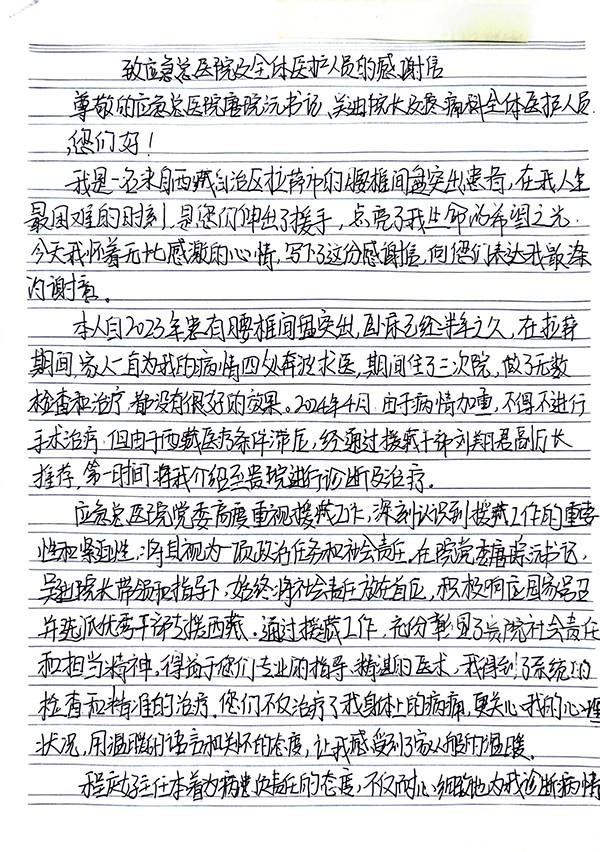 致应急总医院及全体医护人员的感谢信
尊敬的应急总医院唐踪沅书记、吴迪院长及疼痛科全体医护人员
您们好！
我是一名来自西藏自治区拉萨市的腰椎间盘突出患者，在我人生
最困难的时刻，是您们伸出了援手，点亮了我生命的希望之光
今天我怀着无比感激的心情，写下了这份感谢信，向您们表达我最深
的谢意。
本人自2023年患有腰椎间盘突出，卧床已经半年之久，在拉萨
期间，家人一直为我的病情四处奔波求医，期间住了三次院，做了无数
检查和治疗，都没有很好的效果。2024年4月，由于病情加重，不得不进行
手术治疗，但由于西藏医疗条件滞后，经通过援藏干部刘翔君副厅长
推荐，第一时间将我介绍至贵院进行诊断及治疗。
应急总医院党委高度重视援藏工作，深刻认识到援藏工作的重要
性和紧迫性，将其视为一项政治任务和社会责任。在院党委唐踪沅书记，
吴迪院长带领和指导下，始终将社会责任放在首位，积极响应国家号召
并选派优秀干部支援西藏。通过援藏工作，充份彰显了贵院社会责任
和担当精神，得益于您们专业的指导、精湛的医术，我得到了系统的
检查和精准的治疗。您们不仅治疗了我身体上的病痛，更关心我的心理
状况，用温暖的语言和关怀的态度，让我感受到了家人般的温暖。
主任本着为病患负责任的态度，不仅耐心细致地为我诊断病情